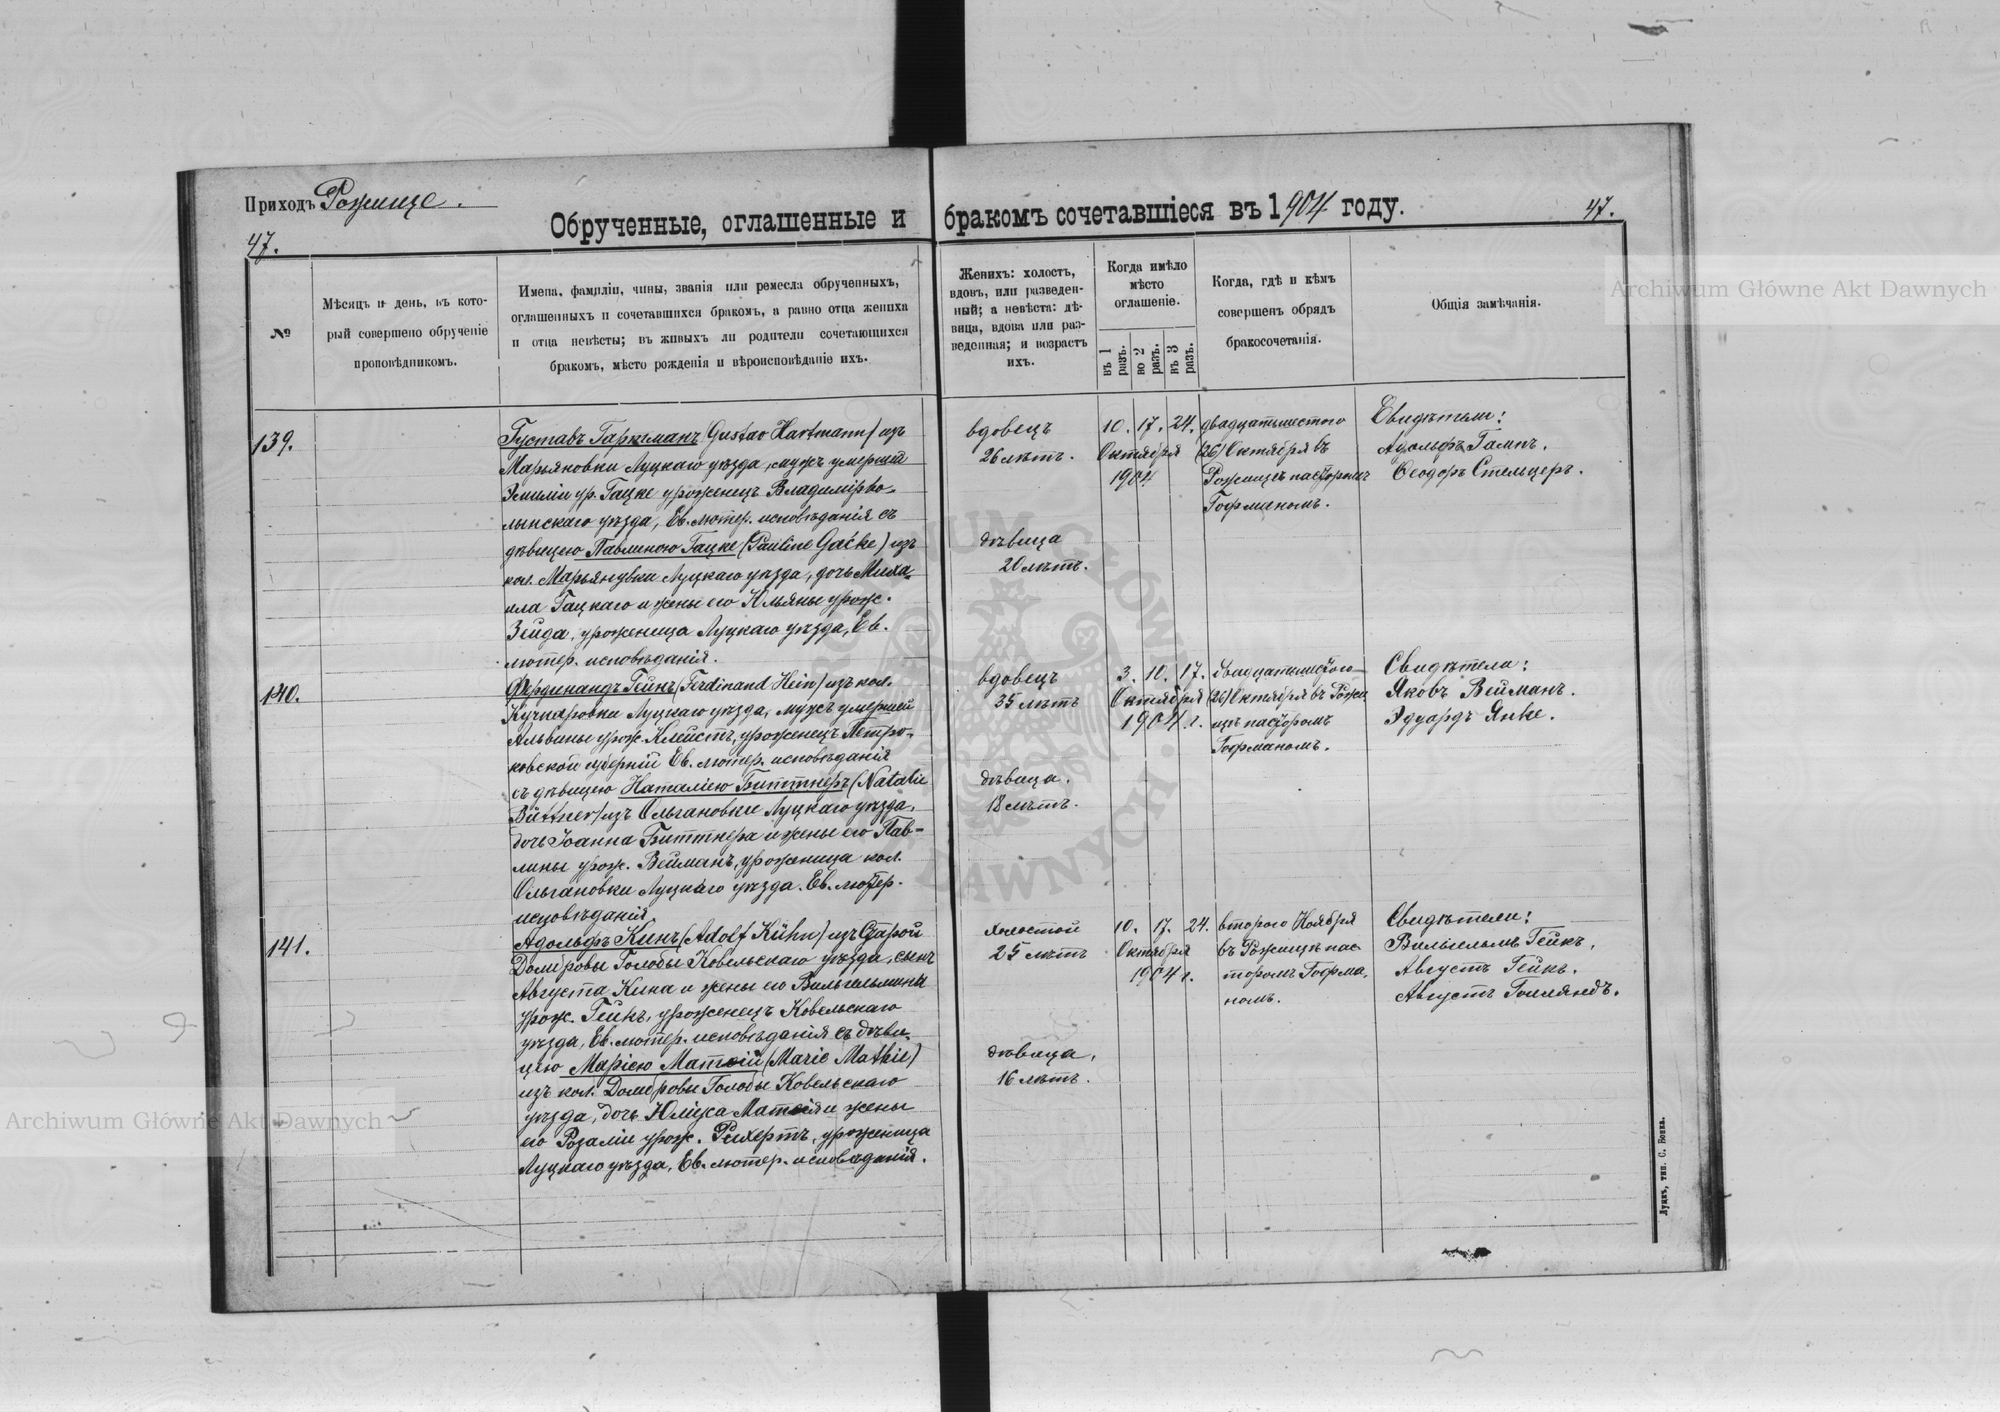 Приходъ Рожище.
Обрученные, оглашенные и бракомъ сочетавшіеся въ 1904 году.
47.
47.
№
Мѣсяцъ и день, въ кото-
рый совершено обрученіе
проповѣдникомъ.
Имена, фамиліи, чины, званія или ремесла обрученныхъ,
оглашенныхъ и сочетавшихся бракомъ, а равно отца жениха
и отца невѣсты; въ живыхъ ли родители сочетающихся
бракомъ, мѣсто рожденія и вѣроисповѣданіе ихъ.
Женихъ: холостъ,
вдовъ, или разведен-
ный; а невѣста: дѣ-
вица, вдова или раз-
веденная; и возрастъ
ихъ.
Когда имѣло
мѣсто
оглашеніе.
въ 1 разъ.
во 2 разъ.
въ 3 разъ.
Когда, гдѣ и кѣмъ
совершенъ обрядъ
бракосочетанія.
Общія замѣчанія.
139.
Густавъ Гартманъ (Gustav Hartmann) изъ
Марьяновки Луцкаго уѣзда, мужъ умершей
Эмиліи ур. Гацке уроженецъ Владимірво-
лынскаго уѣзда, Ев. лютер. исповѣданія съ
дѣвицею Павлиною Гацке (Pauline Gacke) изъ
кол. Марьянувки Луцкаго уѣзда, дочь Миха-
ила Гацкаго и жены его Юльяны урож.
Зейда, уроженица Луцкаго уѣзда, Ев.
лютер. исповѣданія.
вдовецъ
26 лѣтъ.
дѣвица
20 лѣтъ.
10. 17. 24.
Октября
1904
двадцатьшестого
(26) Октября въ
Рожищѣ пасторомъ
Гофманомъ.
Свидѣтели:
Адольфъ Гампъ.
Ѳеодоръ Стельцеръ.
140.
Фердинандъ Гейнъ (Ferdinand Hein) изъ кол.
Кучкаровки Луцкаго уѣзда, мужъ умершей
Альвины урож. Клейстъ, уроженецъ Петро-
ковской губерніи Ев. лютер. исповѣданія
съ дѣвицею Наталіею Биттнеръ (Natalie
Büttner) изъ Ольгановки Луцкаго уѣзда,
дочь Іоанна Биттнера и жены его Пав-
лины урож. Вейманъ, уроженица кол.
Ольгановки Луцкаго уѣзда. Ев. лютер.
исповѣданія.
вдовецъ
35 лѣтъ
дѣвица.
18 лѣтъ.
3. 10. 17.
Октября
1904 г.
двадцатьшестого
(26) Октября въ Рожи
щѣ пасторомъ
Гофманомъ.
Свидѣтели:
Яковъ Вейманъ.
Эдуардъ Янке.
141.
Адольфъ Кинъ (Adolf Kühn) изъ Старой
Домбровы Голобы Ковельскаго уѣзда, сынъ
Августа Кина и жены его Вильгельмины
урож. Гейнъ, уроженецъ Ковельскаго
уѣзда, Ев. лютер. исповѣданія съ дѣви-
цею Маріею Матѳій (Marie Mathie)
изъ кол. Домбровы Голобы Ковельскаго
уѣзда, дочь Юліуса Матѳія и жены
его Розаліи урож. Рихертъ, уроженица
Луцкаго уѣзда, Ев. лютер. исповаданія.
холостой
25 лѣтъ
дѣвица,
16 лѣтъ.
10. 17. 24.
Октября
1904 г.
второго Ноября
въ Рожищѣ пас-
торомъ Гофма-
номъ.
Свидѣтели:
Вильгельмъ Гейнъ,
Августъ Гейнъ.
Августъ Голляндъ.
Луцкъ, тип. С. Бонка.
Archiwum Główne Akt Dawnych
Archiwum Główne Akt Dawnych